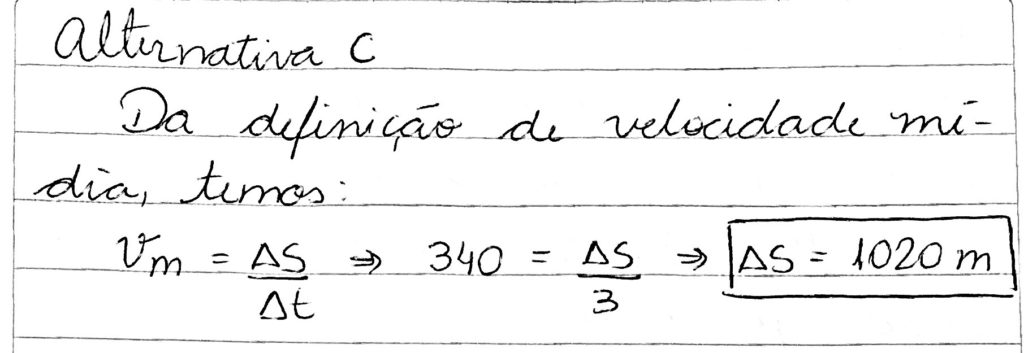 Alternativa C
Da definição de velocidade mé-
dia, temos:
Vm = ΔS/Δt ⇒ 340 = ΔS/3 ⇒ ΔS = 1020 m